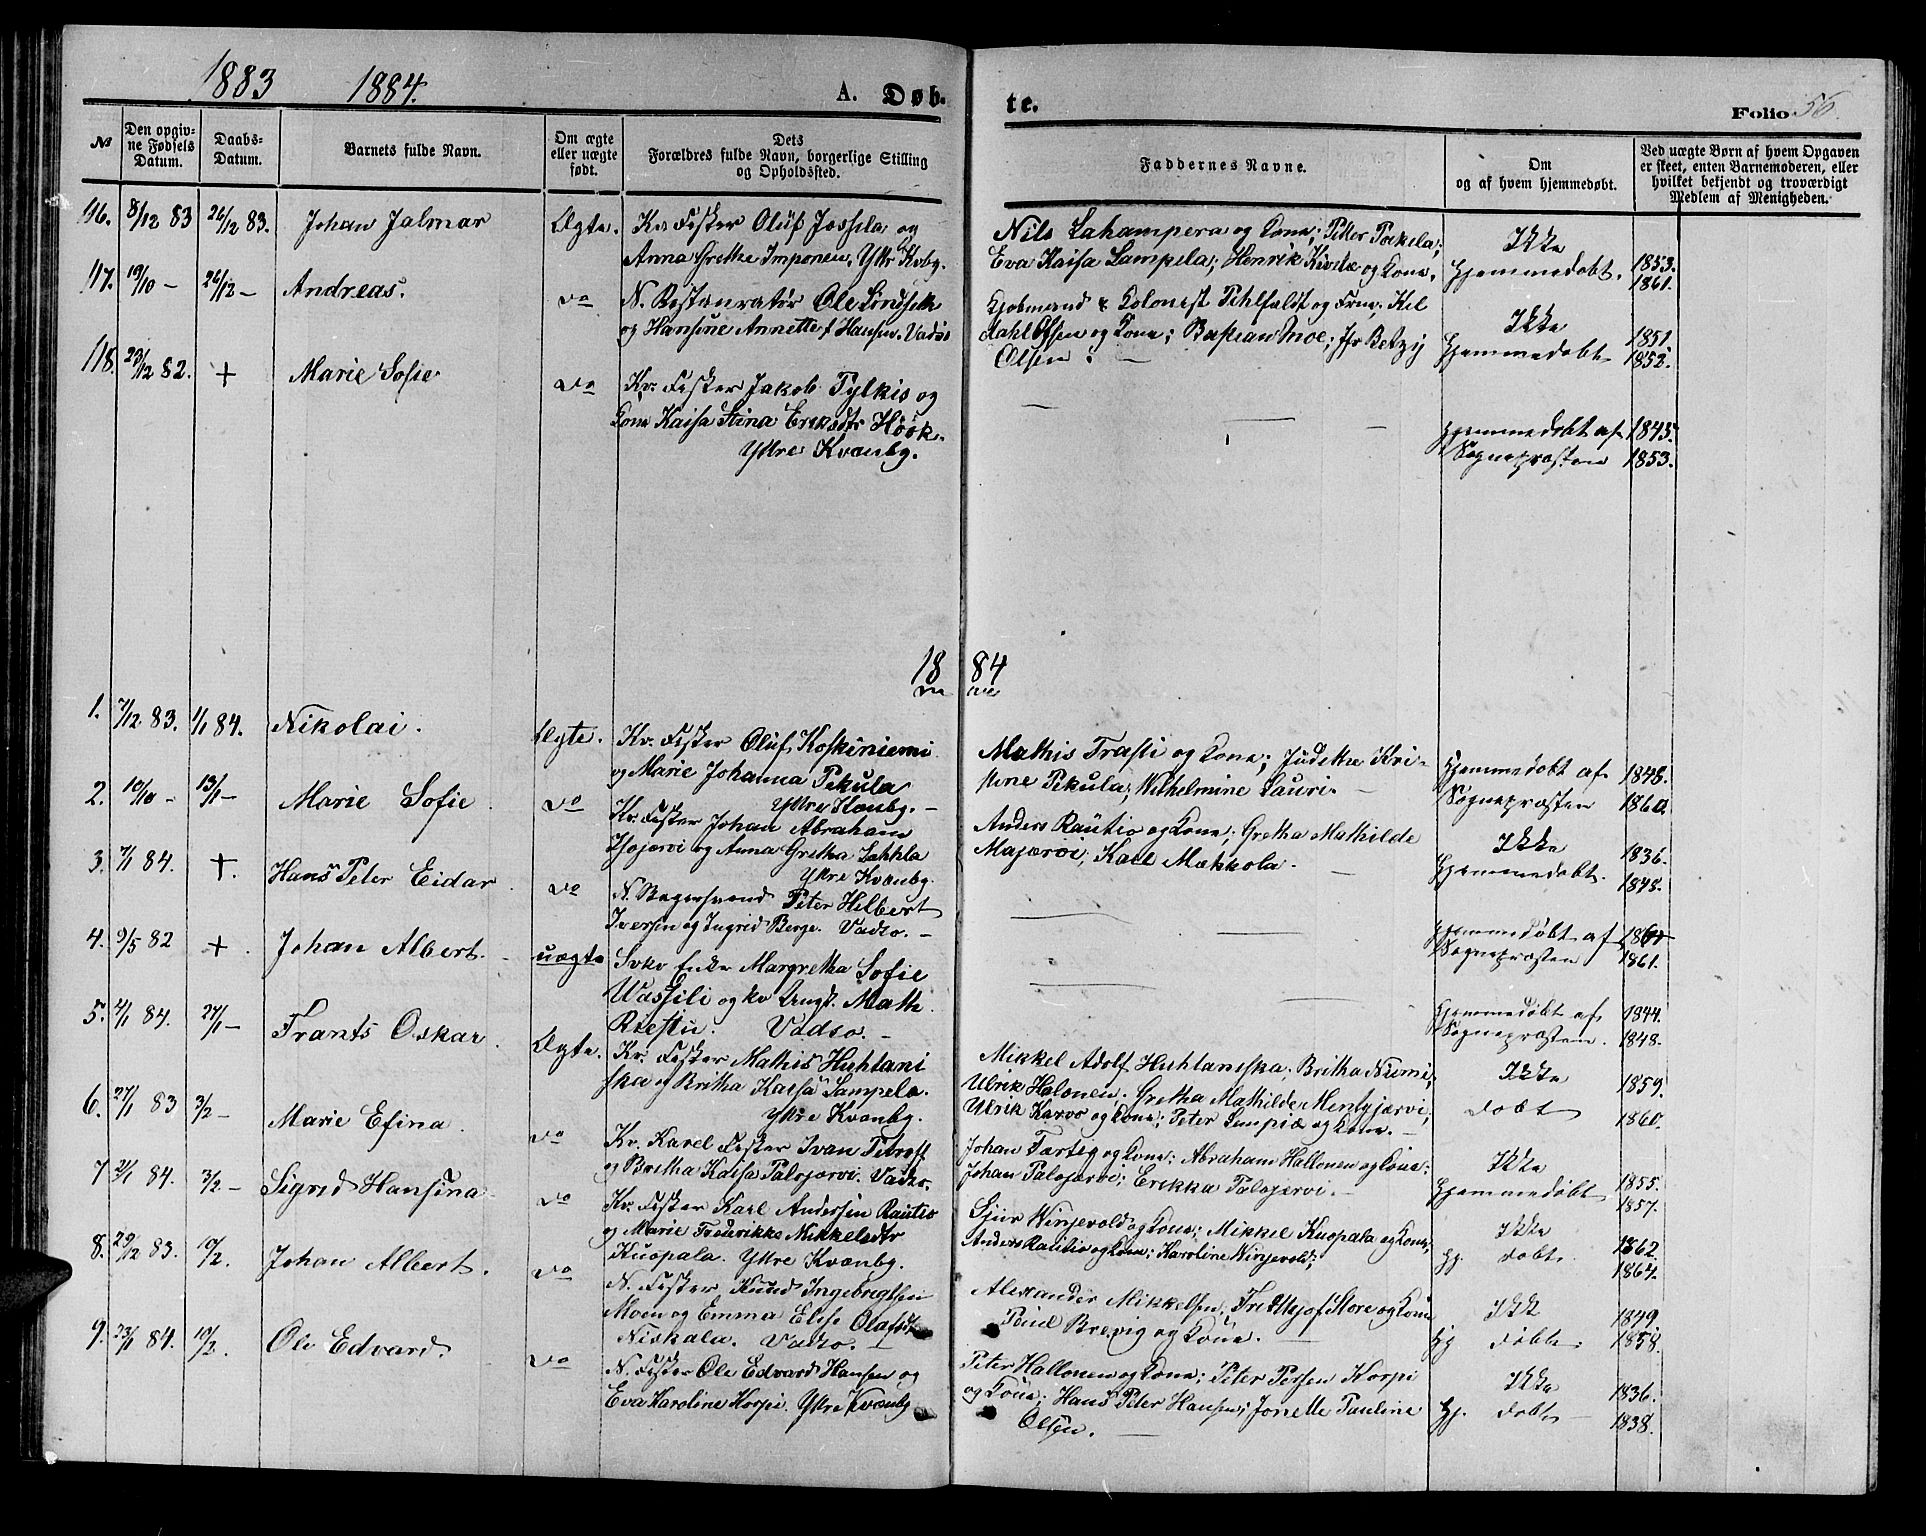 1883 1884.
A. Døb-
te.
Folio 56.
№
Den opgiv-
ne Fødsels
Datum.
Daabs-
Datum.
Barnets fulde Navn.
Om ægte
eller uægte
født.
Dets
Forældres fulde Navn, borgerlige Stilling
og Opholdssted.
Faddernes Navne.
Om
og af hvem hjemmedøbt.
Ved uægte Børn af hvem Opgaven
er skeet, enten Barnemoderen, eller
hvilket bekjendt og troværdigt
Medlem af Menigheden.
116. 8/12 83 26/12 83. Johan Jalmar Ægte. Kv. Fisker Oluf Jossila og
Anna Grethe Imponen, Yttr Kvbg.
Nils Lahampera og Kone; Peter Pokela;
Eva Kaisa Lampela; Henrik Kivelæ og Kone.
Ikke
Hjemmedøbt.
1853.
1861.
117. 19/10 - 26/12 - Andreas. do N. Restauratør Ole
og Hansine Annette f Hansen. Vadsø
Kjøbmand & Kolonist Pihlfeldt og Frue; Kil
dahl Olsen og Kone; Bastian Moe; Jfr Betzy
Olsen; -
Ikke
Hjemmedøbt
1851.
1852.
118. 23/12 82. + Marie Sofie do Kv. Fisker Jakob Tylkis og
Kone Kaisa Stina Eriksdtr Höök.
Yttre Kvænbg.
Hjemmedøbt af
Sognepræsten
1845.
1853.
1884
1. 7/12 83. 1/1 84. Nikolai. Ægte. Kv. Fisker Oluf Koskiniemi
og Marie Johanna Pikula
Yttre Kvænbg. -
Mathis Trasti og Kone; Judithe Kri-
stine Pikula; Wilhelmine Lauri. -
Hjemmedøbt af
Sognepræsten
1848.
1860.
2. 10/10 - 13/1 - Marie Sofie do Kv. Fisker Johan Abraham
Isojærvi og Anna Gretha Lahkla
Yttre Kvænbg.
Anders Rautio og Kone; Gretha Mathilde
Majærvi; Karl Mækkola -
Ikke
Hjemmedøbt.
1836.
1848.
3. 7/1 84. +. Hans Peter Eidar. do N. Bagersvend Peter Hilbert
Iversen og Ingrid Berge. Vadsø. -
Hjemmedøbt af
Sognepræsten
1861.
4. 9/5 82 +. Johan Albert. uægte Enke Margretha Sofie
Wassili og kv Ungk. Math.
Vadsø. -
Hjemmedøbt af
Sognepræsten.
1844.
1848.
5. 4/1 84. 27/1 - Frants Oskar. Ægte. Kv. Fisker Mathis Huhtani
ska og Britha Kaisa Lampela.
Yttre Kvænbg.
Mikkel Adolf Huhtaniska; Britha Niemi;
Ulrik Halonen; Gretha Mathilde Mentyjærvi,
Ulrik Karvo og Kone; Peter Lempiæ og Kone. -
Ikke
døbt
1859.
1860.
6. 27/1 83 3/2 - Marie Efina. do Kv. Karel Fisker Ivan
og Britha Kaisa Palojærvi. Vadsø.
Johan Færtig og Kone; Abraham Hallonen og Kone;
Johan Palojærvi; Erikka Palojærvi. -
Ikke
Hjemmedøbt
1855.
1857.
7 2/1 84. 3/2 - Sigrid Hansina do Kv. Fisker Karl Andersen Rautio
og Marie Frederikke Mikkelsdtr
Kuopala. Yttre Kvænbg.
Sjur Winjevold og Kone; Mikkel Kuopala og Kone;
Anders Rautio og Kone; Karoline Winjevold;
Ikke
Hj. døbt.
1862.
1864.
8. 29/12 83. 10/2. Johan Albert. do N. Fisker Knud Ingebregtsen
Moen og Emma Elise Olafsdt
Niskala. Vadsø. -
Alexander Mikkelsen; Fridtjof Store og Kone
Poul Brevig og Kone. -
Ikke
Hj døbt.
1849.
1858.
9. 23/1 84. 10/2. Ole Edvard. do N. Fisker Ole Edvard Hansen og
Eva Karoline Korpi. Yttre Kvænbg
Peter Hallonen og Kone; Peter Persen Korpi
og Kone; Hans Peter Hansen; Jonette Pauline
Olsen. -
Ikke
Hj. døbt -
1836.
1838.